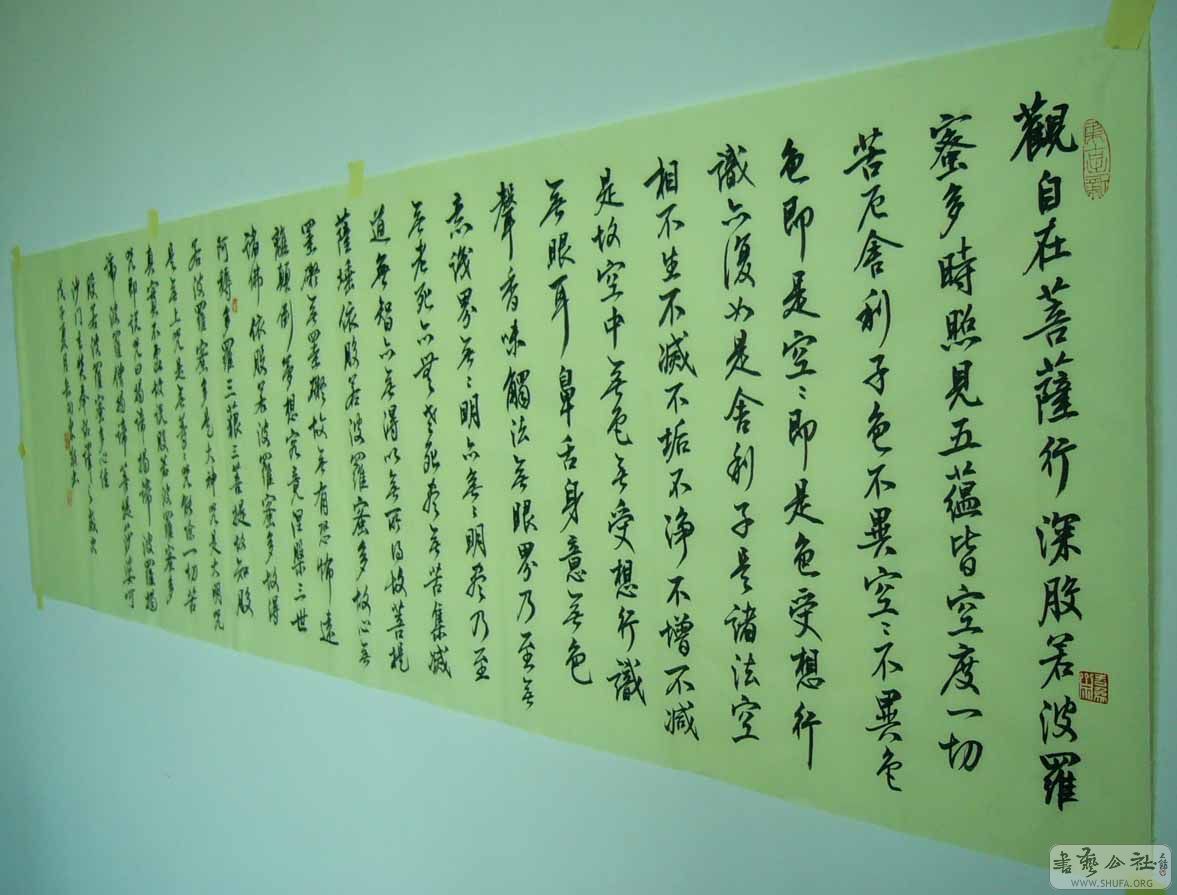 觀自在菩薩行深般若波羅
蜜多時照見五蘊皆空度一切
苦厄舍利子色不異空〻不異色
色即是空〻即是色受想行
識亦復如是舍利子是諸法空
相不生不滅不垢不淨不增不減
是故空中無色無受想行識
無眼耳鼻舌身意無色
聲香味觸法無眼界乃至無
意識界無〻明亦無〻明盡乃至
無老死亦無老死盡無苦集滅
道無智亦無得以無所得故菩提
薩埵依般若波羅蜜多故心無
罣礙無罣礙故無有恐怖遠
離顛倒夢想究竟涅槃三世
諸佛依般若波羅蜜多故得
阿耨多羅三藐三菩提故知般
若波羅蜜多是大神咒是大明咒
是無上咒是無等〻咒能除一切苦
真實不虛故說般若波羅蜜多
咒即說咒曰揭諦揭諦波羅揭
諦波羅僧揭諦菩提莎婆呵
般若波羅蜜多心經
沙門玄奘奉詔譯
戊子
書藝公社
WWW.SHUFA.ORG